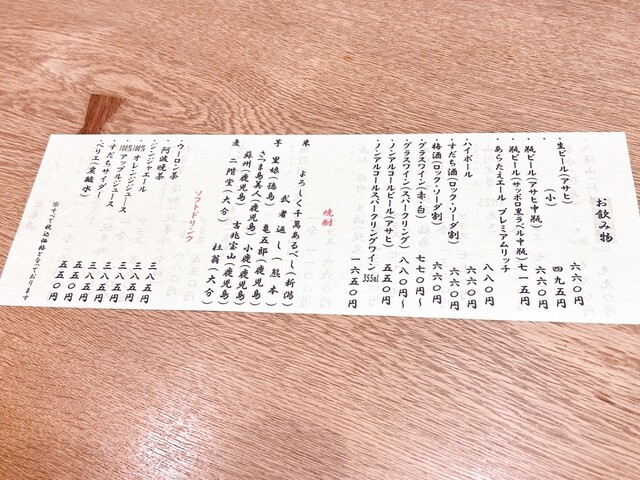 お飲み物
・生ビール(アサヒ) 六六〇円
・(小) 四九五円
・瓶ビール(アサヒ中瓶) 六六〇円
・瓶ビール(サッポロ黒ラベル中瓶) 七一五円
・あらたえエール プレミアムリッチ 八八〇円
・ハイボール 六六〇円
・すだち酒(ロック・ソーダ割) 六六〇円
・梅酒(ロック・ソーダ割) 六六〇円
・グラスワイン(赤・白) 七七〇円〜
・グラスワイン(スパークリング) 八八〇円〜
・ノンアルコールビール(アサヒ) 五五〇円
・ノンアルコールスパークリングワイン 355ml 一六五〇円
焼酎
米 よろしく千萬あるべし(新潟)
武者返し(熊本)
芋 里娘(徳島) 亀五郎(鹿児島)
さつま島美人(鹿児島) 小鹿(鹿児島)
蘇州(鹿児島) 吉兆宝山(鹿児島)
麦 二階堂(大分) 杜翁(大分)
ソフトドリンク
・ウーロン茶 三八五円
・阿波晩茶 三八五円
・ジンジャエール 三八五円
・100%オレンジジュース 三八五円
・100%アップルジュース 三八五円
・すだちサイダー 五五〇円
・ペリエ(炭酸水) 五五〇円
※すべて税込価格となっております